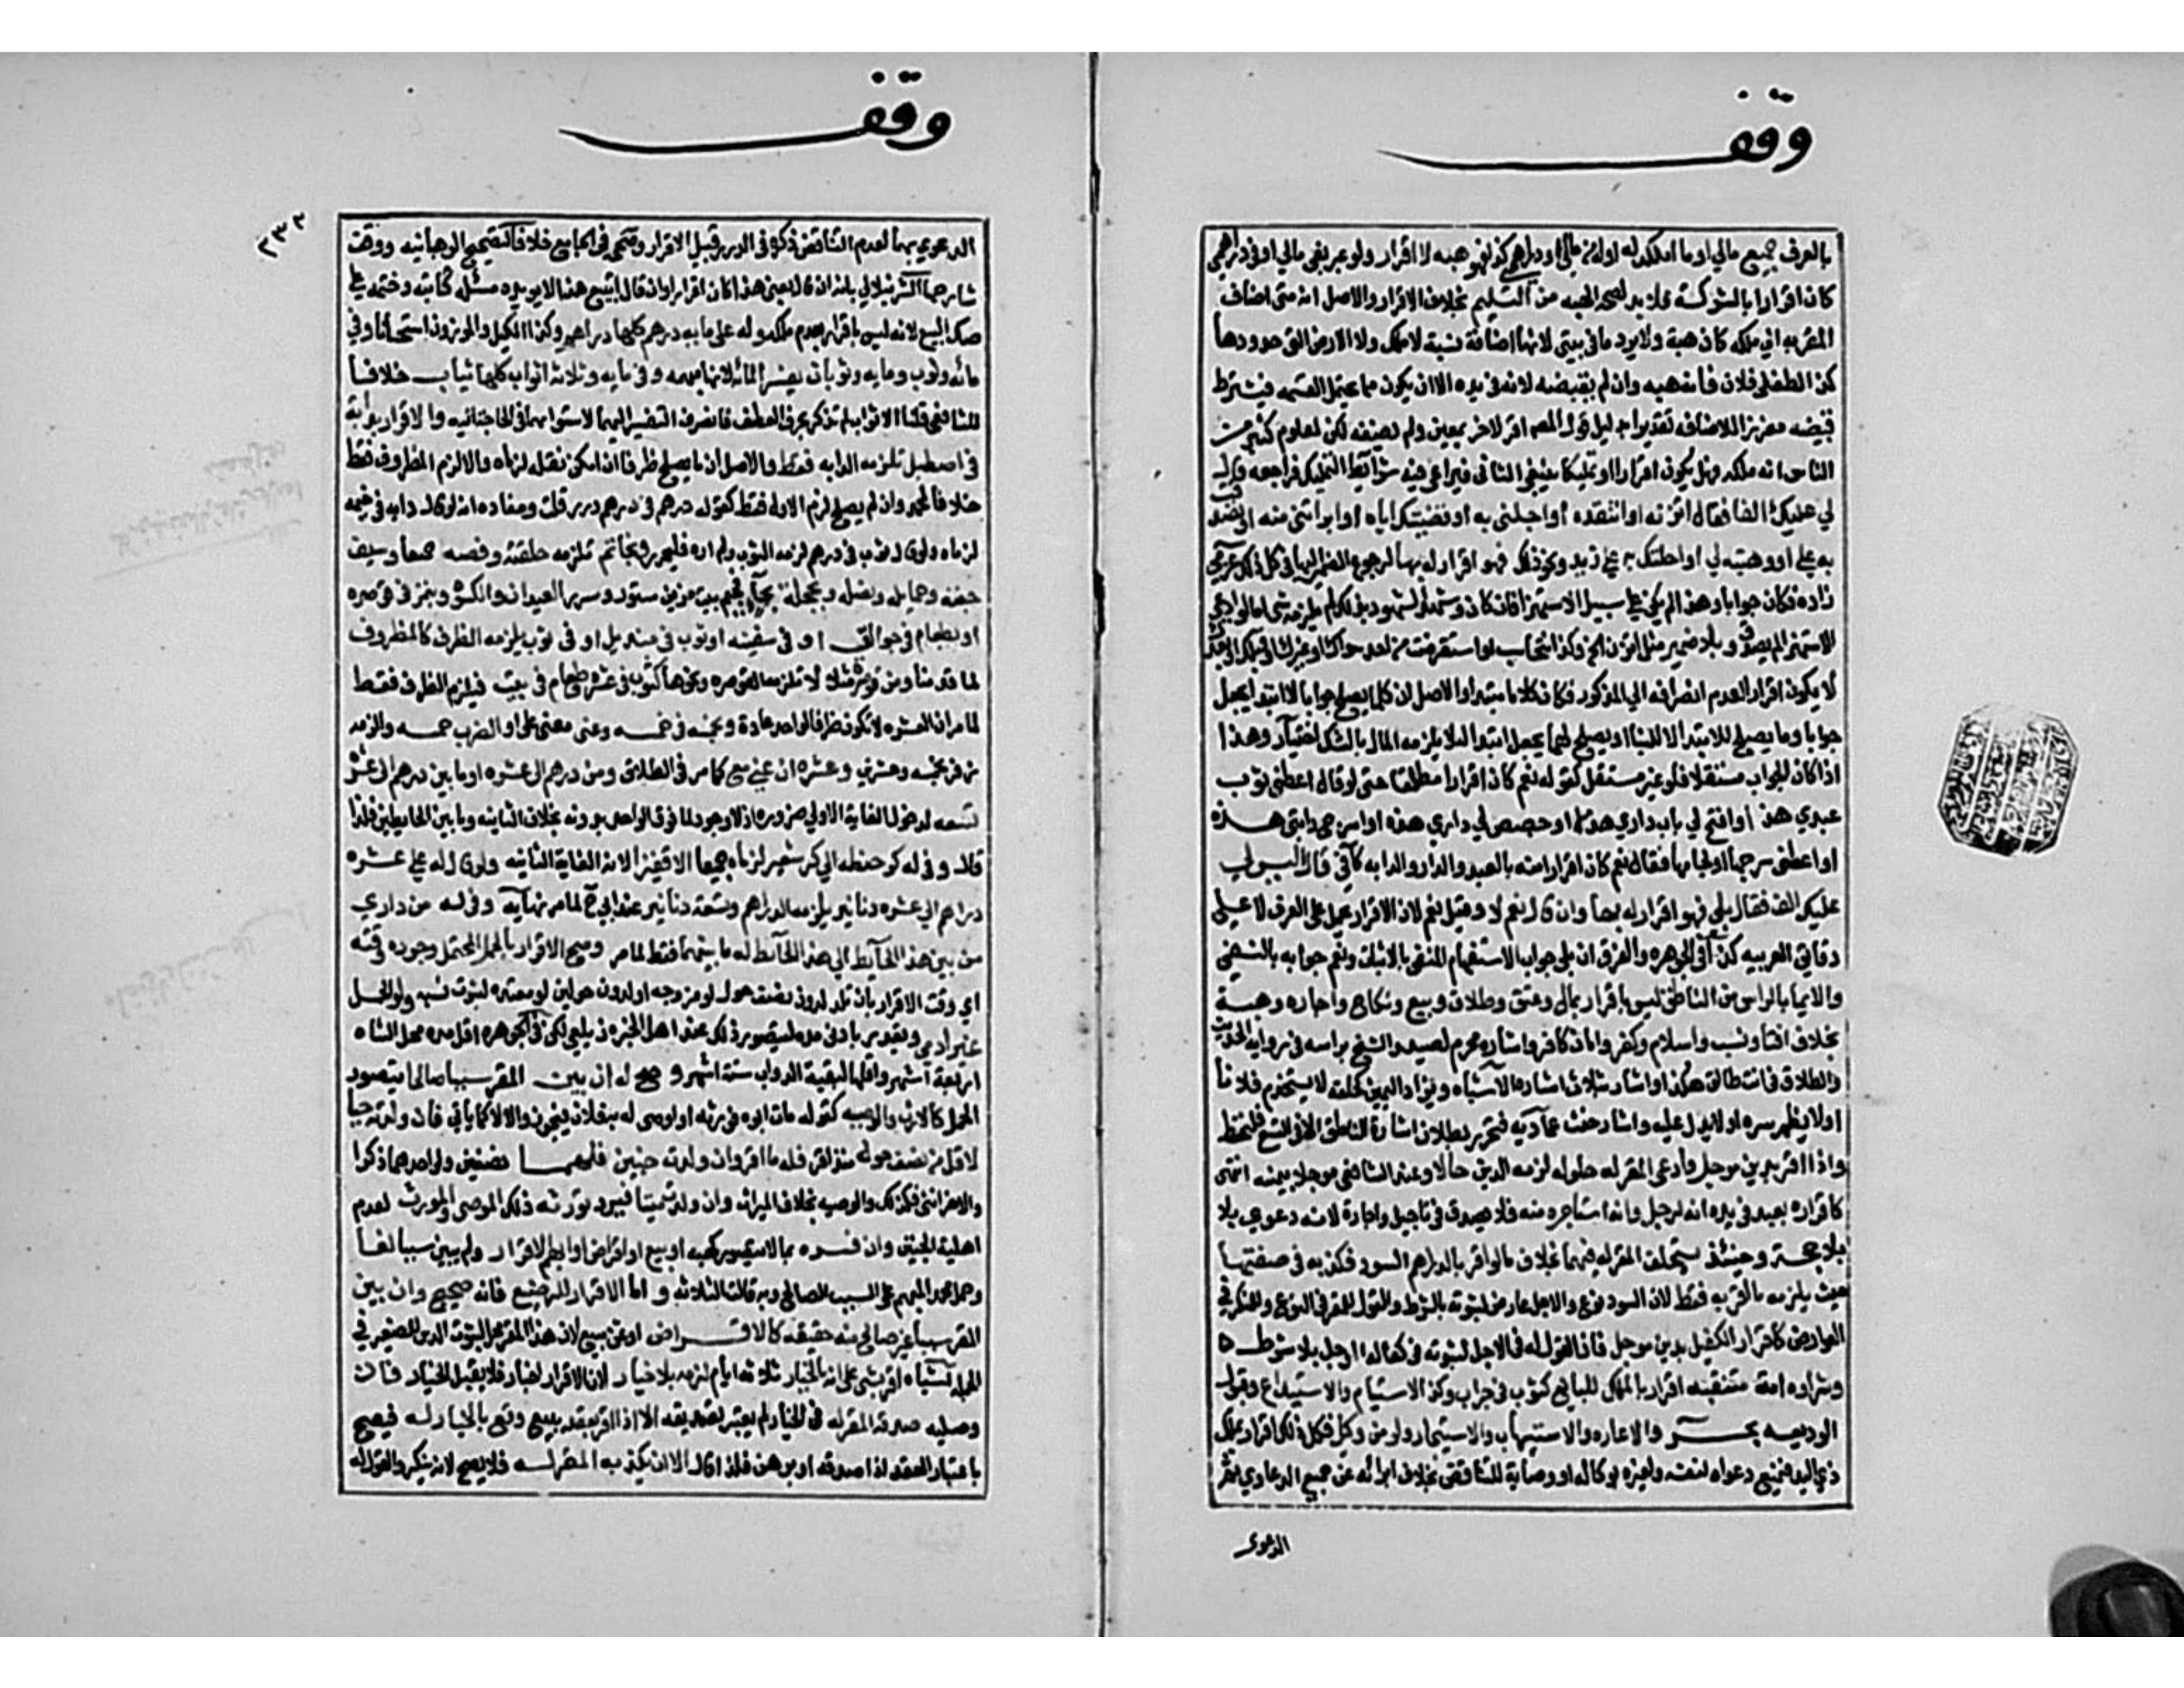 وقف
بالعرف جميع مالي او ما املكه له او له من مالي او دراهمي كذا فهو هبه لا اقرار ولو عبر بفي مالي او في دراهمي
كان اقرارا بالشركة فلا بد لصحة الهبه من التسليم بخلاف الاقرار والاصل انه متى اضاف
المقر به الي ملكه كان هبة ولا يرد ما في بيتي لانها اضافة نسبة لا ملك ولا الارض التي حدودها
كذا لطفلي فلان فانه هبه وان لم يقبضه لانه في يده الا ان يكون مما يحتمل القسمه فيشترط
قبضه مفرزا للاضافه تقديرا بدليل قول المص اقر لاخر بمعين ولم يضفه لكن لمعلوم كثير من
الناس انه ملكه فهل يكون اقرارا او تمليكا ينبغي الثاني فيراعي فيه شرائط التمليك فراجعه قال
لي عليك الف فقال اتزنه او انتقده او اجلني به او قضيتك اياه او ابراتني منه او تصدقت
به علي او وهبته لي او احلتك به علي زيد ونحو ذلك فهو اقرار له بها لرجوع الضمير اليها في كل ذلك عزمي
زاده فكان جوابا وهذا لم يكن علي سبيل الاستهزا فان كان وشهد الشهود بذلك لم يلزمه شي اما لو ادعي
الاستهزا لم يصدق وبلا ضمير مثل اتزن الخ وكذا نتحاسب او ما استقرضت من احد سواك او غيرك او قبلك او بعدك
لا يكون اقرارا لعدم انصرافه الي المذكور فكان كلاما مبتدا والاصل ان كلما يصلح جوابا لا ابتدا يجعل
جوابا وما يصلح للابتدا لا للبنا او يصلح لهما يجعل ابتدا لئلا يلزمه المال بالشك اختيار وهذا
اذا كان الجواب مستقلا فلو غير مستقل كقوله نعم كان اقرارا مطلقا حتى لو قال اعطني ثوب
عبدي هذا او افتح لي باب داري هذه او جصص لي داري هذه او اسرج دابتي هذه
او اعطني سرجها او لجامها فقال نعم كان اقرارا منه بالعبد والدار والدابه كافي قال اليس لي
عليك الف فقال بلي فهو اقرار له بها وان قال نعم لا وقيل نعم لان الاقرار يحمل على العرف لا علي
دقائق العربيه كذا في الجوهره والفرق ان بلي جواب الاستفهام المنفي بالاثبات ونعم جوابه بالنفي
والايما بالراس من الناطق ليس باقرار بمال وعتق وطلاق وبيع ونكاح واجاره وهبة
بخلاف افتا ونسب واسلام وكفر وامان كافر واشارة محرم لصيد والشيخ براسه في رواية الحديث
والطلاق في انت طالق هكذا واشار بثلاث اشارة الاشباه ويزاد اليمين كحلفه لا يستخدم فلانا
او لا يظهر سره او لا يدل عليه واشار حنث عماديه فتحرر بطلان اشارة الناطق الا في التسع فليحفظ
واذا اقر بدين موجل وادعى المقر له حلوله لزمه الدين حالا وعند الشافعي موجلا بيمينه انتهى
كاقراره بعبد في يده انه لرجل وانه استاجره منه فلا يصدق في تاجيل واجارة لانه دعوي بلا
بلا حجة وحينئذ يستحلف المقر له فيهما بخلاف ما لو اقر بالدراهم السود فكذبه في صفتها
حيث يلزمه ما اقر به فقط لان السود نوع والاجل عارض لثبوته بالشرط والقول للمقر في النوع وللمنكر في
العوارض كاقرار الكفيل بدين موجل فان القول له في الاجل لثبوته في كفالة الموجل بلا شرط
وشراوه امة متنقبه اقرار بالملك للبائع كثوب في جراب وكذا الاستيام والاستيداع وقبول
الوديعه بحر والاعاره والاستيهاب والاستيجار ولو من وكيل فكل ذلك اقرار بملك
ذي اليد فيمنع دعواه لنفسه ولغيره بوكاله او وصاية للتناقض بخلاف ابرائه عن جميع الدعاوي ثم
الدعوى
وقف
٢٣٣
الدعوي بهما لعدم التناقض ذكره في الدرر قبيل الاقرار وصححه في الجامع خلافا لتصحيح الوهبانيه ووفق
شارحها الشرنبلالي بانه ان قال بعني هذا كان اقرارا وان قال اتبيع هذا لا يويده مسئلة كتابته وختمه علي
صك البيع لانه ليس باقرار بعدم ملكه وله على مايه ودرهم كلها دراهم وكذا المكيل والموزون استحسانا وفي
مائه وثوب ومايه وثوبان يفسر المائه لانها مبهمه وفي مايه وثلاثه اثواب كلها ثياب خلافا
للشافعي قلنا الاثواب لم تذكر بحرف العطف فانصرف التفسير اليهما لاستوائهما في الحاجة اليه والاقرار بدابة
في اصطبل تلزمه الدابه فقط والاصل ان ما يصلح ظرفا ان امكن نقله لزماه والا لزم المظروف فقط
خلافا لمحمد وان لم يصلح لزم الاول فقط كقوله درهم في درهم درر قلت ومفاده انه لو قال دابه في خيمه
لزماه ولو قال ثوب في درهم لزمه الثوب ولم اره فليحرر وبخاتم تلزمه حلقته وفصه جميعا وسيف
جفنه وحمايله ونصله وبحجلة بحاء فجيم بيت مزين بستور وسرر العيدان والكسوة وبتمر في قوصره
او بطعام في جوالق او في سفينه او ثوب في منديل او في ثوب يلزمه الظرف كالمظروف
لما قدمنا ومن قوصرة مثلا لا تلزمه القوصره ونحوها كثوب في عشره وطعام في بيت فيلزم المظروف فقط
لما مر ان العشره لا تكون ظرفا لواحد عادة وبخمسه في خمسه وعنى معنى على او الضرب خمسه والزمه
زفر بخمسه وعشرين وعشره ان عني مع كما مر في الطلاق ومن درهم الى عشره او ما بين درهم الى عشرة
تسعه لدخول الغاية الاولي ضرورة اذ لا وجود لما فوق الواحد بدونه بخلاف الثانيه وما بين الحايطين فلذا
قال وفي له كر حنطه الي كر شعير لزماه جميعا الا قفيزا لانه الغاية الثانيه ولو قال له علي عشره
دراهم الي عشره دنانير يلزمه الدراهم وتسعة دنانير عند ابي ح لما مر نهايه وفي له من داري
من بين هذا الحائط الي هذا الحائط له ما بينهما فقط لما مر وصح الاقرار بالحمل المحتمل وجوده وقته
اي وقت الاقرار بان تلد لدون نصف حول لو مزوجه او لدون حولين لو معتده لثبوت نسبه ولو الحمل
غير ادمي ويقدر بادني مدة يتصور ذلك عند اهل الخبره زيلعي لكن في الجوهره اقل مدة حمل الشاه
اربعة اشهر واقلها لبقية الدواب ستة اشهر وصح له ان بين المقر سببا صالحا يتصور
للحمل كالارث والوصيه كقوله مات ابوه فورثه او اوصى له به فلان فيجوز والا لا كما ياتي فان ولدته حيا
لاقل من نصف حول منذ اقر فله ما اقر وان ولدت حيين فلهما نصفين ولو احدهما ذكرا
والاخر انثى فكذلك والوصيه بخلاف الميراث وان ولدته ميتا فيرد لورثه ذلك الموصي والمورث لعدم
اهلية الجنين وان فسره بما لا يتصور كهبه او بيع او اقراض او ابهم الاقرار ولم يبين سببا لغا
وحمل محمد المبهم على السبب الصالح وبه قالت الثلاثه واما الاقرار للرضيع فانه صحيح وان بين
المقر سببا غير صالح منه حقيقه كالاقراض او ثمن مبيع لان هذا المقر محل لثبوت الدين للصغير في
الجملة اشباه اقر بشي على انه بالخيار ثلاثة ايام لزمه بلا خيار لان الاقرار اخبار فلا يقبل الخيار فان
وصليه صدقه المقر له في الخيار لم يعتبر تصديقه الا اذا اقر بعقد بيع وقع بالخيار له فيصح
باعتبار العقد اذا صدقه او برهن فلذا قال الا ان يكذبه المقر له فلا يصح لانه منكر والقول له